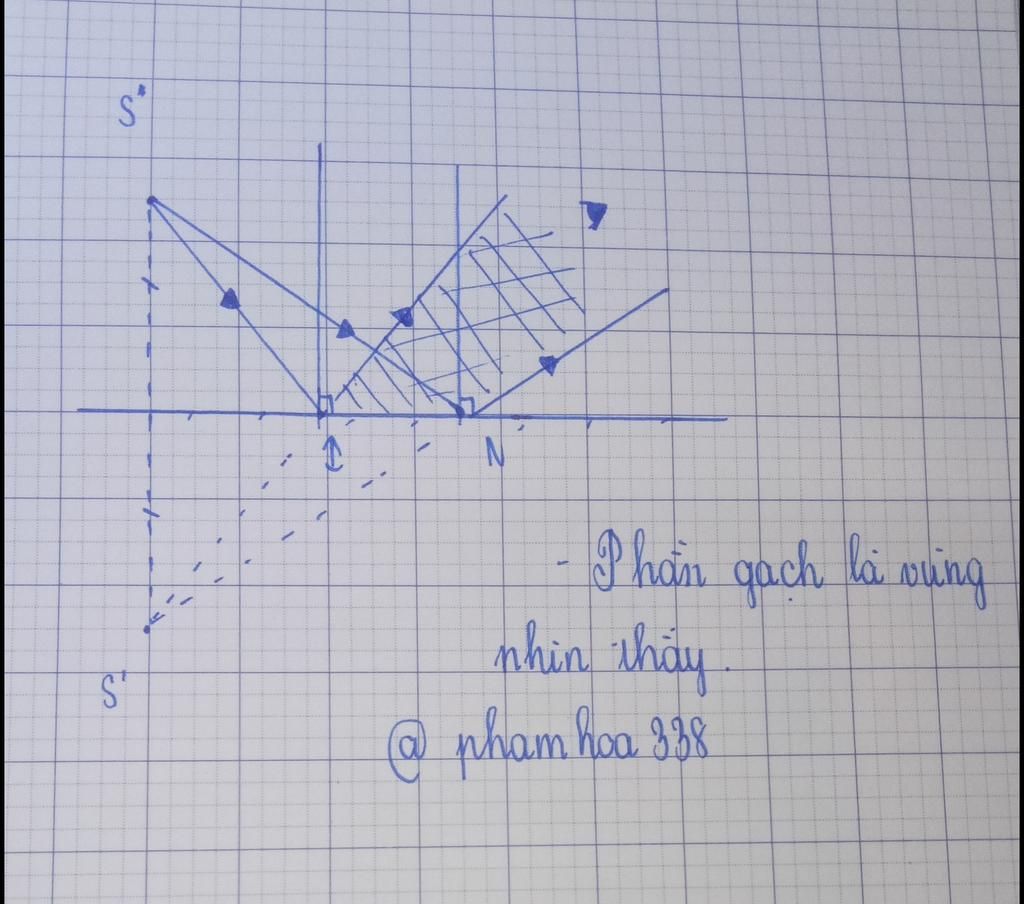 S
I
N
- Phần gạch là vùng
nhìn thấy.
S'
@ phamhoa 338